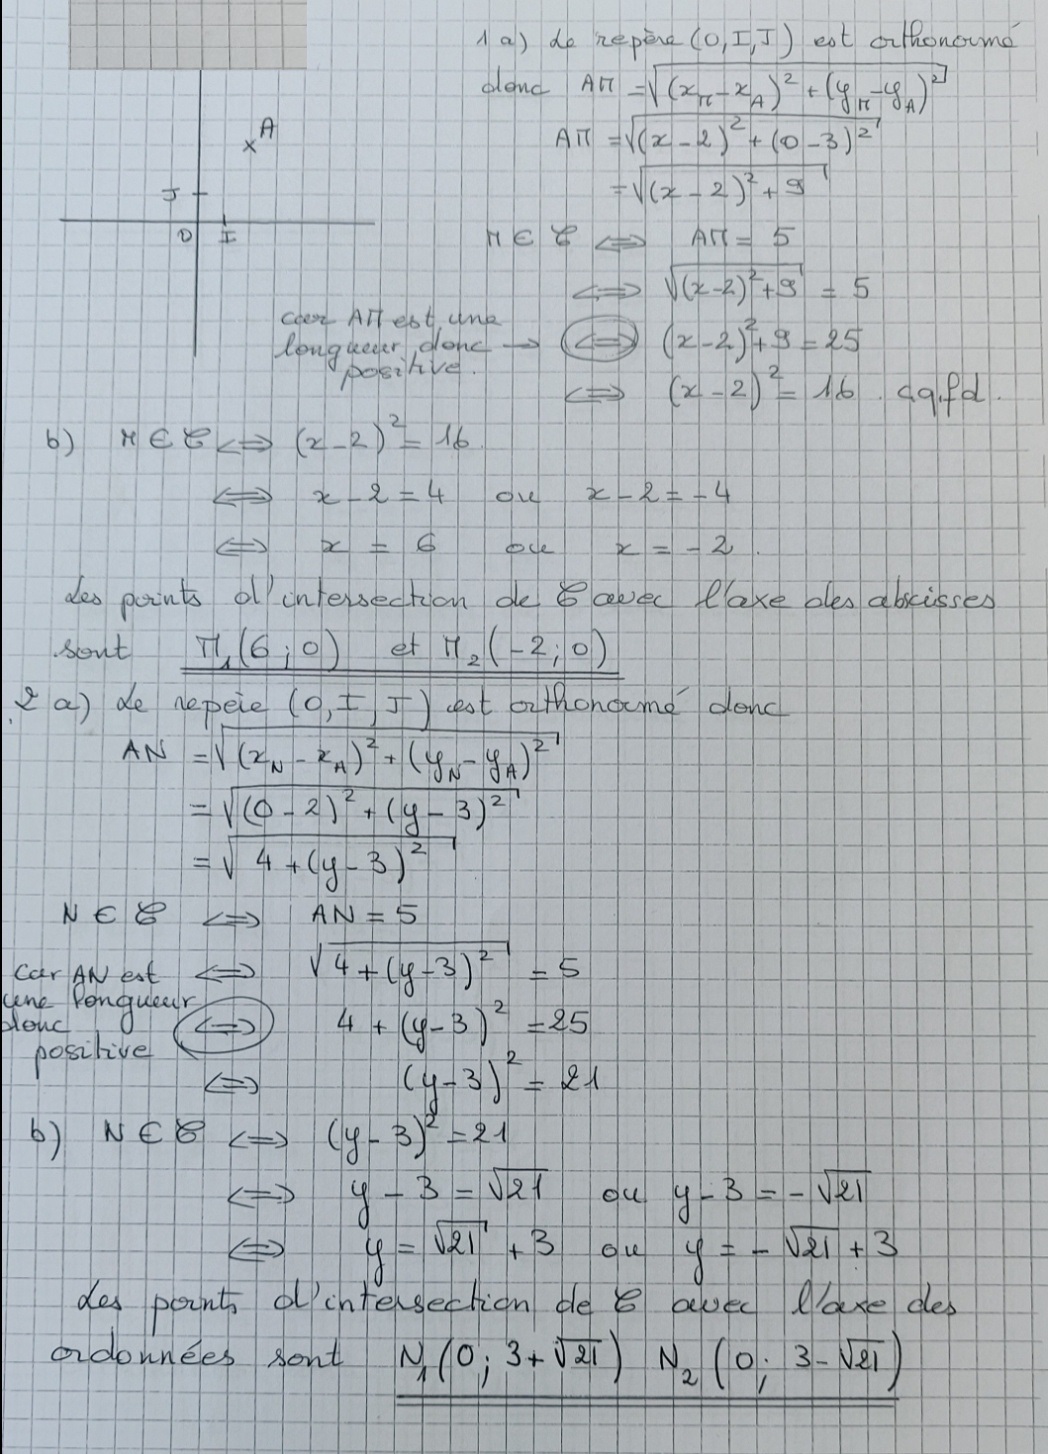 1 a) Le repère (O, I, J) est orthonormé
donc AM = √((x_M - x_A)² + (y_M - y_A)²)
A
AM = √((x - 2)² + (0 - 3)²)
= √((x - 2)² + 9)
J
O I
M ∈ 𝒞 ⟺ AM = 5
⟺ √((x-2)² + 9) = 5
car AM est une
longueur donc → ⟺ (x-2)² + 9 = 25
positive.
⟺ (x - 2)² = 16 . cqfd.
b) M ∈ 𝒞 ⟺ (x - 2)² = 16
⟺ x - 2 = 4 ou x - 2 = - 4
⟺ x = 6 ou x = - 2 .
Les points d'intersection de 𝒞 avec l'axe des abscisses
sont M₁(6 ; 0) et M₂(-2 ; 0)
2 a) Le repère (O, I, J) est orthonormé donc
AN = √((x_N - x_A)² + (y_N - y_A)²)
= √((0 - 2)² + (y - 3)²)
= √(4 + (y - 3)²)
N ∈ 𝒞 ⟺ AN = 5
car AN est ⟺ √(4 + (y-3)²) = 5
une longueur
donc ⟺ 4 + (y-3)² = 25
positive
⟺ (y-3)² = 21
b) N ∈ 𝒞 ⟺ (y - 3)² = 21
⟺ y - 3 = √21 ou y - 3 = - √21
⟺ y = √21 + 3 ou y = - √21 + 3
Les points d'intersection de 𝒞 avec l'axe des
ordonnées sont N₁(0 ; 3+√21) N₂(0 ; 3-√21)